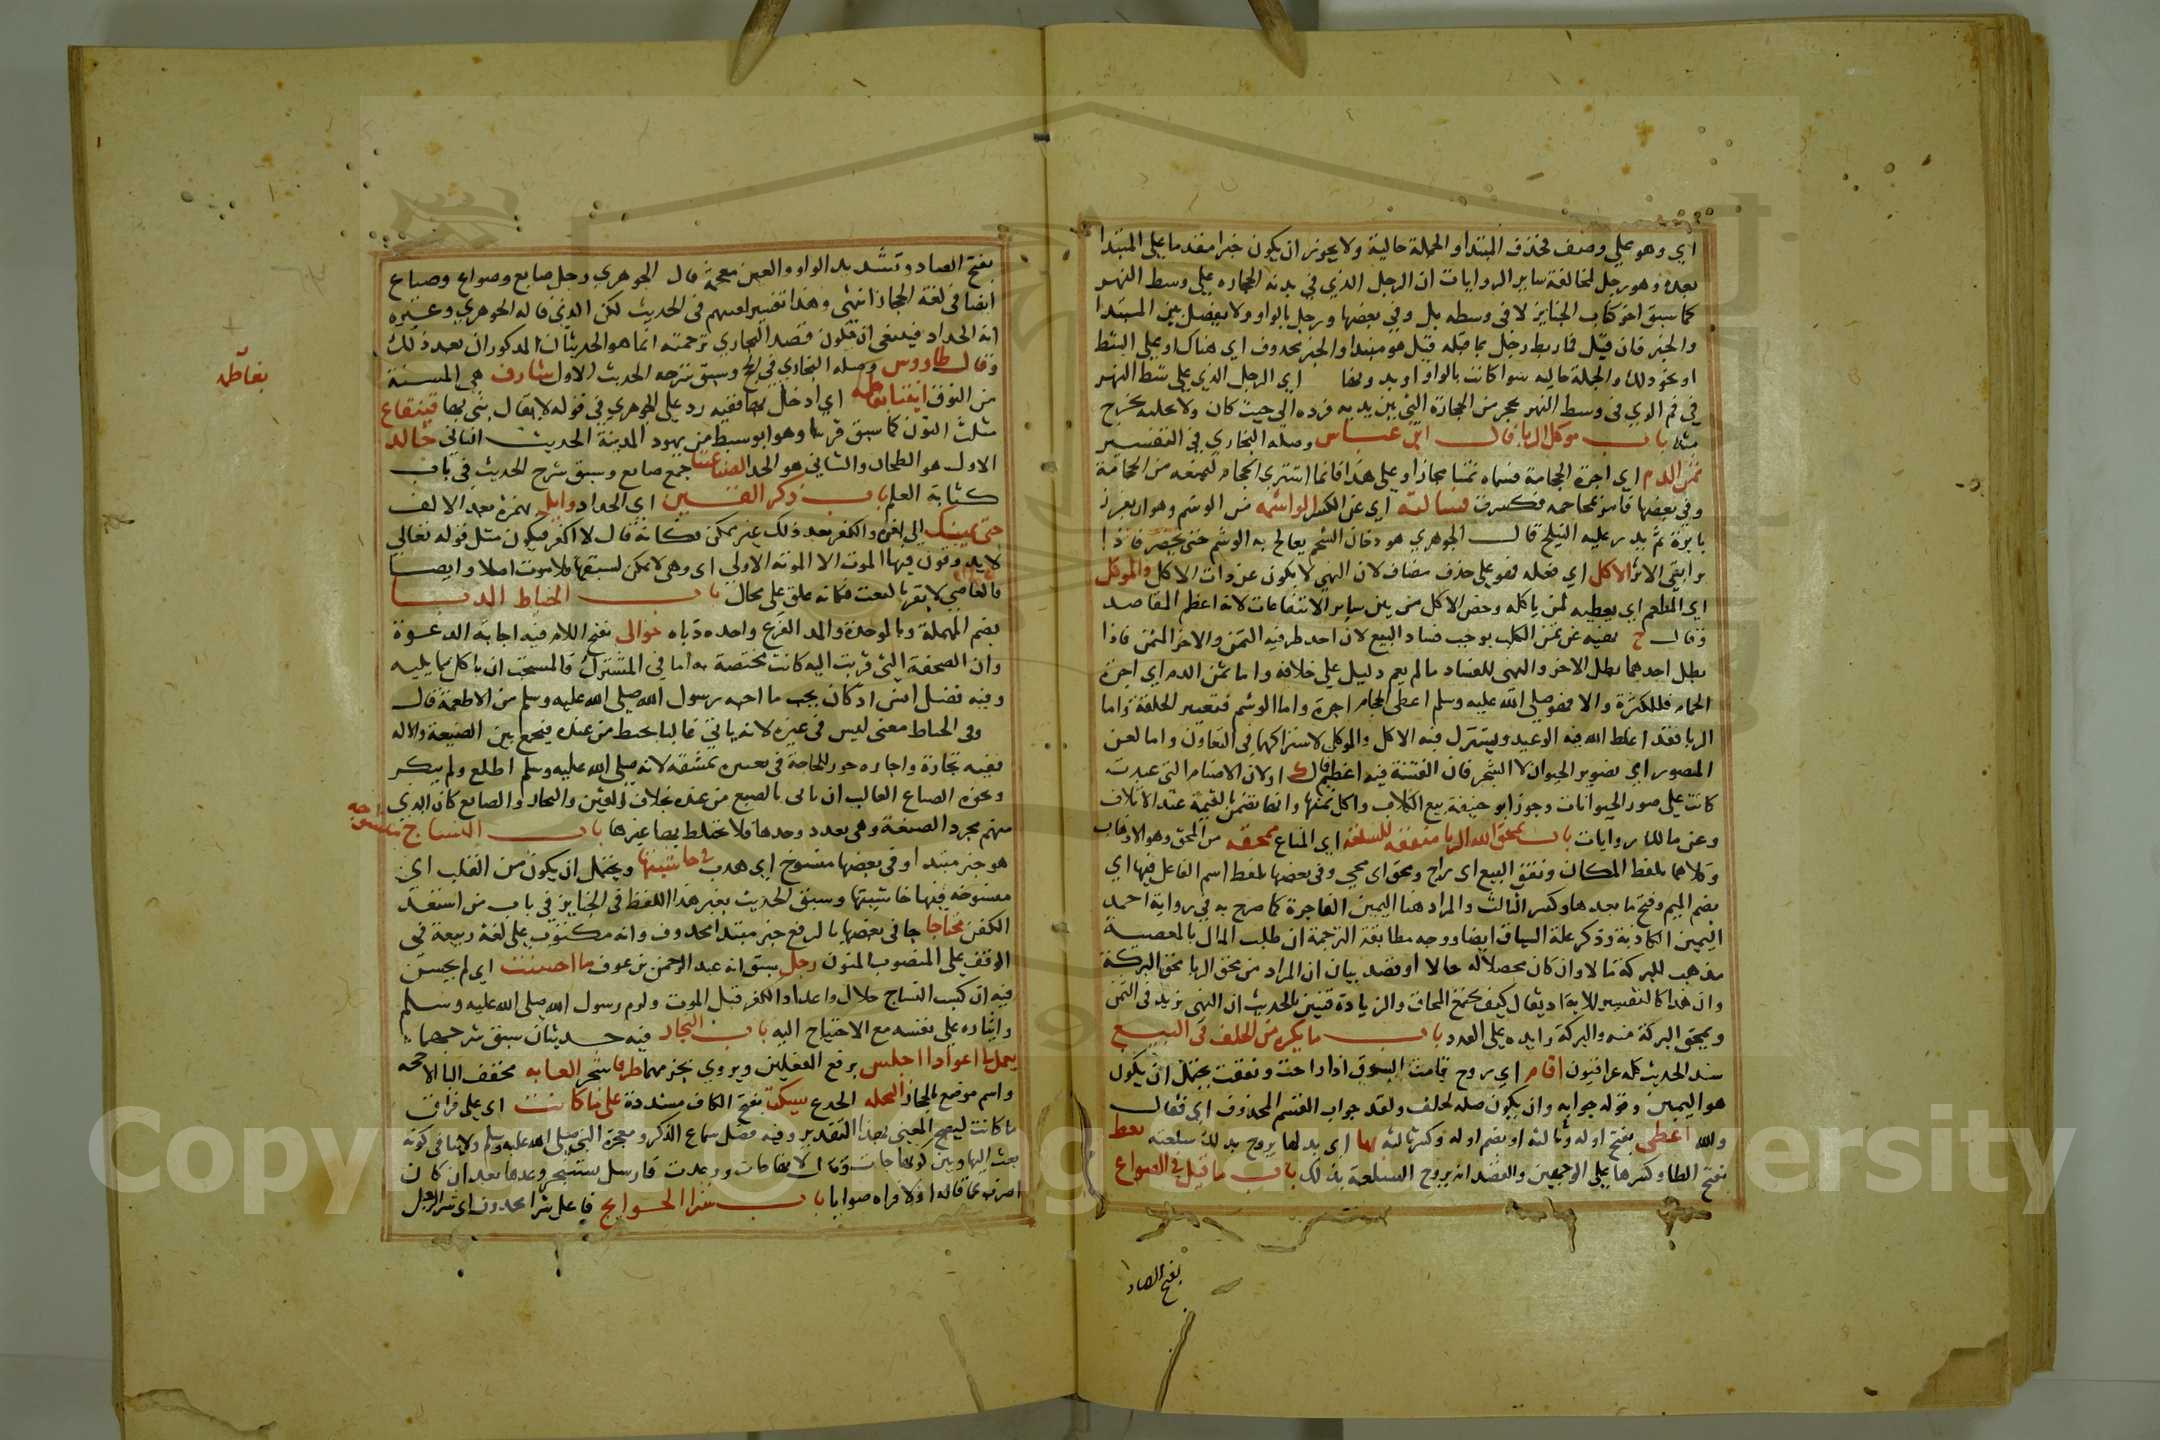 اي وهو علي وصف فحذف المبتدا والجملة حالية ولا يجوز ان يكون خبرا مقدما علي المبتدا
بعده وهو رجل لمخالفة ساير الروايات ان الرجل الذي في يديه الحجاره علي وسط النهر
كما سبق اخر كتاب الجنايز لا في وسطه بل وفي بعضها ورجل بالواو ولا يفصل بين المبتدا
والخبر فان قيل فاربط رجل بما قبله قيل هو مبتدا والخبر محدوف اي هناك او علي الشط
او نحو ذلك والجملة حاليه سوا كانت بالواو او بدونها اي الرجل الذي علي شط النهر
في فم الذي في وسط النهر بحجر من الحجارة التي بين يديه فرده الي حيث كان ولا يخليه يخرج
منه باب موكل الربا قال ابن عباس وصله البخاري في التفسير
ثمن الدم اي اجرة الحجامة فسماه ثمنا مجازا وعلي هذا فانما اشتري الحجام ليمنعه من الحجامة
وفي بعضها فامر بمحاجمه فكسرت فسالته اي عن الكسر الواشمة من الوشم وهو ان يغرز
بابرة ثم يذر عليه النيلج قال الجوهري هو دخان الشحم يعالج به الوشم حتي يخضر فاذا
برا بقي الاثر الاكل اي فعله فهو علي حذف مضاف لان النهي لا يكون عن ذات الاكل والموكل
اي المطعم اي يعطيه لمن ياكله وخص الاكل من بين ساير الانتفاعات لانه اعظم المقاصد
وقال خ نهيه عن ثمن الكلب يوجب فساد البيع لان احد طرفيه الثمن والاخر المثمن فاذا
بطل احدهما بطل الاخر والنهي للفساد مالم يقم دليل علي خلافه واما ثمن الدم اي اجرة
الحجام فللكثرة والا فهو صلي الله عليه وسلم اعطي الحجام اجرة واما الوشم فتغيير الخلقة واما
الربا فقد اغلظ الله فيه الوعيد ويشترك فيه الاكل والموكل لاشتراكهما في التعاون واما لعن
المصور اي تصوير الحيوان لا الشجر فان الفتنة فيه اعظم قال ك اولان الاصنام التي عبدت
كانت علي صور الحيوانات وجوز ابو حنيفة بيع الكلاب واكل ثمنها وانها تضمن بالقيمة عند الاتلاف
وعن مالك روايات باب يمحق الله الربا منفقة للسلعة اي المتاع ممحقة من المحق وهو الاذهاب
وكلاهما بلفظ المكان ونفق البيع اي راج ومحق اي محي وفي بعضها بلفظ اسم الفاعل فيها اي
بضم الميم وفتح ما بعدها وكسر الثالث والمراد هنا اليمين الفاجرة كما صرح به في رواية احمد
اليمين الكاذبة وذكر علة السياق ايضا ووجه مطابقة الترجمة ان طلب المال بالمعصية
مذهب للبركة مالا وان كان محصلا له حالا او قصد بيان ان المراد من محق الربا محق البركة
وان هذا كالتفسير للاية اديقال كيف يجتمع المحاق والزيادة فتبين بالحديث ان النهي يزيد في الثمن
ويمحق البركة منه والبركة زايده علي العدد باب ما يكره من الحلف في البيع
سند الحديث كله عراقيون اقام اي روج قامت السوق اذا راجت ونفقت يحتمل ان يكون
هو اليمين وقوله جوابه وان يكون صله لحلف ولقد جواب القسم المحذوف اي فقال
والله اعطي بفتح اوله وثالثه او بضم اوله وكسر ثالثه بها اي بدلها يروج بذلك سلعته يعط
بفتح الطا وكسرها علي الوجهين والقصد انه يروج السلعة بذلك باب ما قيل في الصواغ
بفتح الصاد
بفتح الصاد وتشديد الواو والعين معجمة قال الجوهري رجل صايغ وصواغ وصياغ
ايضا في لغة الحجاز انتهي وهذا تفسير لعسهم في الحديث لكن الذي قاله الجوهري وغيره
انه الحداد فينبغي ان يكون قصد البخاري ترجمته انما هو الحديثان المدكوران بعد ذلك
وقال طاووس وصله البخاري في الحج وسبق شرحه الحديث الاول شارف هي المسنة
من النوق ابتنا بفاطمة اي ادخل بها ففيه رد علي الجوهري في قوله لا يقال بني بها قينقاع
مثلث النون كما سبق قريبا وهو ابو سبط من يهود المدينة الحديث الثاني خالد
الاول هو الطحان والثاني هو الحدا لصاغتنا جمع صايغ وسبق شرح الحديث في باب
كتابة العلم باب ذكر القين اي الحداد وايل بهمزة بعد الالف
حتي يميتك الي اخره والكفر بعد ذلك غير ممكن فكانه قال لا اكفر فيكون مثل قوله تعالي
لا يذوقون فيها الموت الا الموتة الاولي اي وهي لا يمكن لسبقها فلا موت اصلا وايضا
فالعاصي لا يقر بالبعث فكانه علق علي محال باب الخياط الدبا
بضم المهملة وبالموحدة والمد القرع واحده دباه حوالي بفتح اللام فيه اجابة الدعوة
وان الصحفة التي قربت اليه كانت مختصة به اما في المشترك فالمستحب ان ياكل مما يليه
وفيه فضل انس اذ كان يحب ما احبه رسول الله صلي الله عليه وسلم من الاطعمة قال
وفي الخياط معني ليس في غيره لانه ياتي غالبا بخيط من عنده فيجمع بين الصنعة والاله
ففيه تجارة واجاره جوز للحاجة في تمييزه مشقه لانه صلي الله عليه وسلم اطلع ولم ينكر
ونحوه الصباغ الغالب ان ياتي بالصبغ من عنده بخلاف القين والنجار والصايغ كان الذي
منهم مجرد الصنعة وهي بعدد وحدها فلا تختلط بها غيرها باب النساج منسوجه
هو خبر مبتدا وفي بعضها منسوج اي هدب في حاشيتها ويحتمل ان يكون من القلب اي
منسوجه فيها حاشيتها وسبق الحديث بغير هذا اللفظ في الجنايز في باب من استعد
الكفن محتاجا جا في بعضها بالرفع خبر مبتدا محدوف وانه مكتوب علي لغة ربيعة في
الوقف علي المنصوب المنون رجل سبق انه عبد الرحمن بن عوف ما احسنت اي لم يحسن
فيه ان كسب النساج حلال واعداد الكفن قبل الموت ولزم رسول الله صلي الله عليه وسلم
وايثاره علي نفسه مع الاحتياج اليه باب النجار فيه حديثان سبق شرحهما
يعمل لي اعوادا اجلس برفع الفعلين ويروي بجزمهما طرفا شجر الغابه مخفف البا الاجمه
واسم موضع بالحجاز النخله الجدع سكت بفتح الكاف مشددة علي ما كانت اي علي فراق
ما كانت ليصح المعني بهذا التقدير وفيه فضل سماع الذكر ومعجزة النبي صلي الله عليه وسلم
باب شرا الحوايج فاعل شرا محدوف اي شرا الرجل
بفاطمة